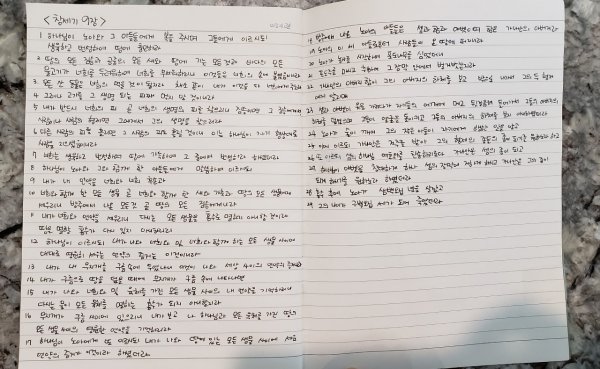 <창세기 9장>
1 하나님이 노아와 그 아들들에게 복을 주시며 그들에게 이르시되
생육하고 번성하여 땅에 충만하라
2 땅의 모든 짐승과 공중의 모든 새와 땅에 기는 모든 것과 바다의 모든
물고기가 너희를 두려워하며 너희를 무서워하리니 이것들은 너희의 손에 붙였음이니라
3 모든 산 동물은 너희의 먹을 것이 될지라 채소 같이 내가 이것을 다 너희에게 주노라
4 그러나 고기를 그 생명 되는 피째 먹지 말 것이니라
5 내가 반드시 너희의 피 곧 너희의 생명의 피를 찾으리니 짐승이면 그 짐승에게서
사람이나 사람의 형제면 그에게서 그의 생명을 찾으리라
6 다른 사람의 피를 흘리면 그 사람의 피도 흘릴 것이니 이는 하나님이 자기 형상대로
사람을 지으셨음이니라
7 너희는 생육하고 번성하며 땅에 가득하여 그 중에서 번성하라 하셨더라
8 하나님이 노아와 그와 함께 한 아들들에게 말씀하여 이르시되
9 내가 내 언약을 너희와 너희 후손과
10 너희와 함께 한 모든 생물 곧 너희와 함께 한 새와 가축과 땅의 모든 생물에게
세우리니 방주에서 나온 모든 것 곧 땅의 모든 짐승에게니라
11 내가 너희와 언약을 세우리니 다시는 모든 생물을 홍수로 멸하지 아니할 것이라
땅을 멸할 홍수가 다시 있지 아니하리라
12 하나님이 이르시되 내가 나와 너희와 및 너희와 함께 하는 모든 생물 사이에
대대로 영원히 세우는 언약의 증거는 이것이니라
13 내가 내 무지개를 구름 속에 두었나니 이것이 나와 세상 사이의 언약의 증거니라
14 내가 구름으로 땅을 덮을 때에 무지개가 구름 속에 나타나면
15 내가 나와 너희와 및 육체를 가진 모든 생물 사이의 내 언약을 기억하리니
다시는 물이 모든 육체를 멸하는 홍수가 되지 아니할지라
16 무지개가 구름 사이에 있으리니 내가 보고 나 하나님과 모든 육체를 가진 땅의
모든 생물 사이의 영원한 언약을 기억하리라
17 하나님이 노아에게 또 이르시되 내가 나와 땅에 있는 모든 생물 사이에 세운
언약의 증거가 이것이라 하셨더라
18 방주에서 나온 노아의 아들들은 셈과 함과 야벳이며 함은 가나안의 아버지라
19 노아의 이 세 아들로부터 사람들이 온 땅에 퍼지니라
20 노아가 농사를 시작하여 포도나무를 심었더니
21 포도주를 마시고 취하여 그 장막 안에서 벌거벗은지라
22 가나안의 아버지 함이 그의 아버지의 하체를 보고 밖으로 나가서 그의 두 형제
에게 알리매
23 셈과 야벳이 옷을 가져다가 자기들의 어깨에 메고 뒷걸음쳐 들어가서 그들의 아버지의
하체를 덮었으며 그들이 얼굴을 돌이키고 그들의 아버지의 하체를 보지 아니하였더라
24 노아가 술이 깨어 그의 작은 아들이 자기에게 행한 일을 알고
25 이에 이르되 가나안은 저주를 받아 그의 형제의 종들의 종이 되기를 원하노라 하고
26 또 이르되 셈의 하나님 여호와를 찬송하리로다 가나안은 셈의 종이 되고
27 하나님이 야벳을 창대하게 하사 셈의 장막에 거하게 하시고 가나안은 그의 종이
되게 하시기를 원하노라 하였더라
28 홍수 후에 노아가 삼백오십 년을 살았고
29 그의 나이가 구백오십 세가 되어 죽었더라